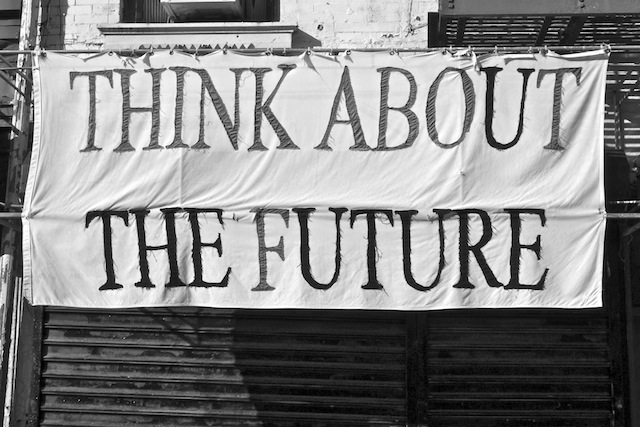 THINK ABOUT
THE FUTURE